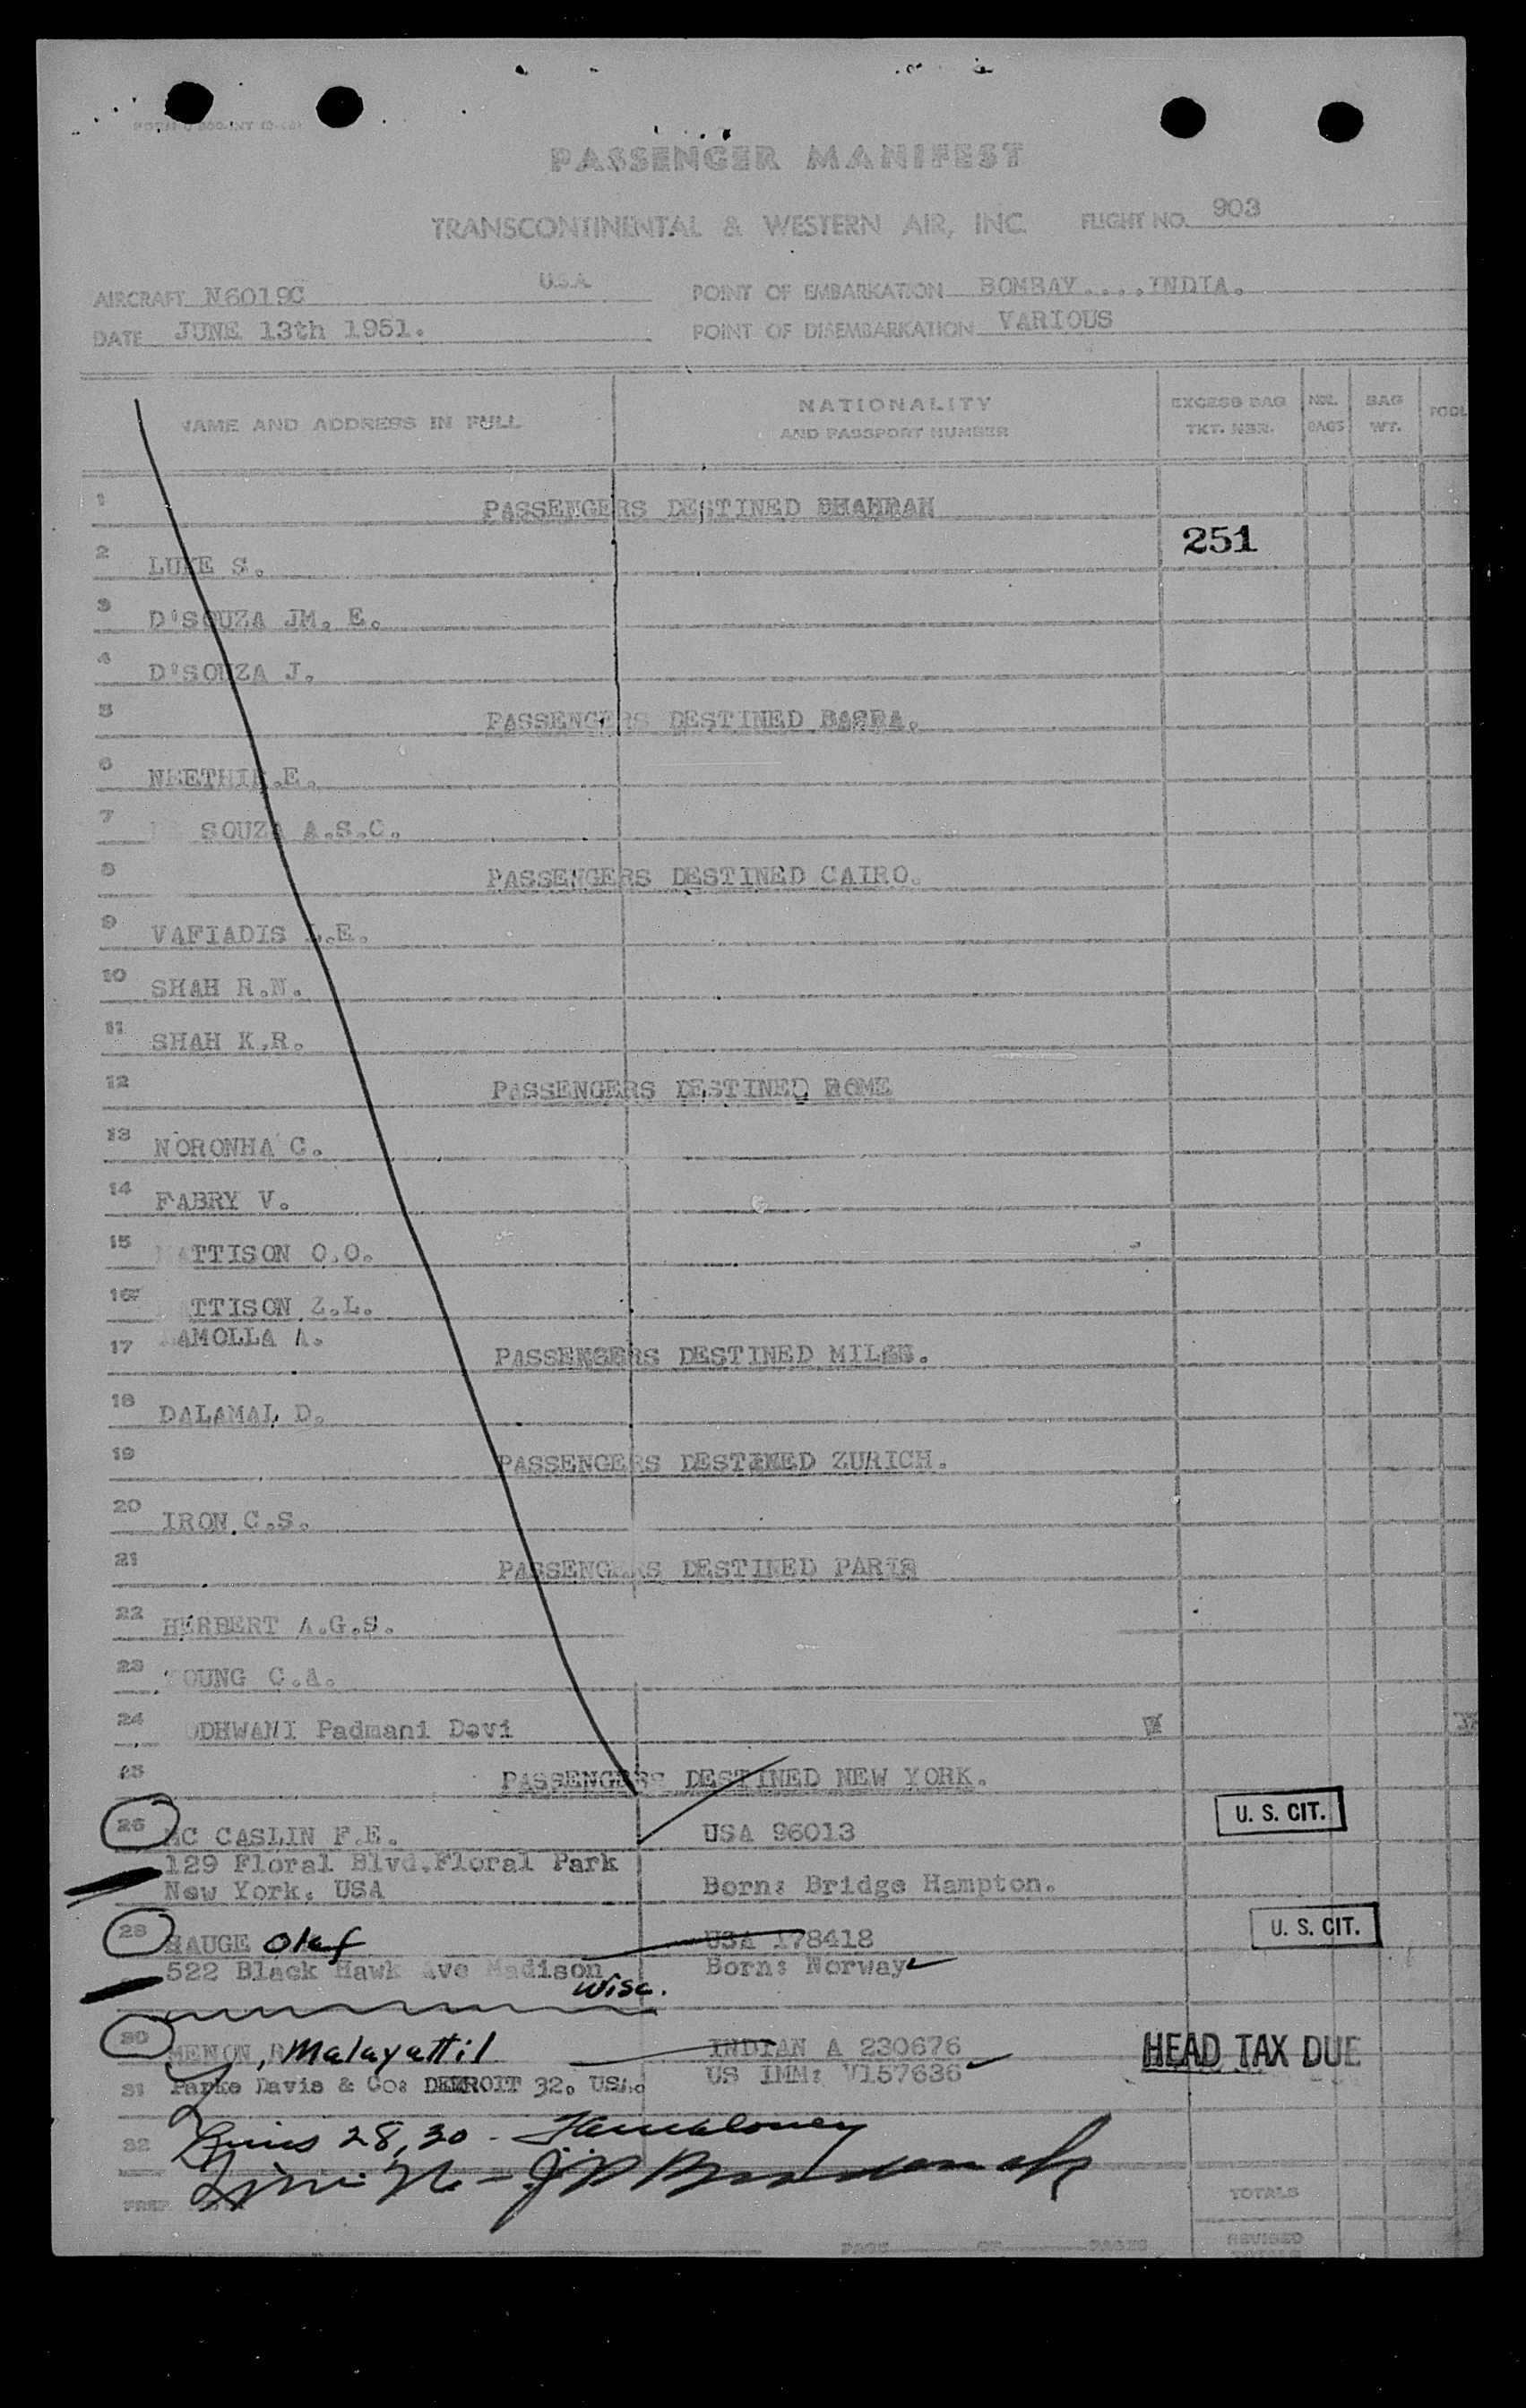 PASSENGER MANIFEST
TRANSCONTINENTAL & WESTERN AIR, INC. FLIGHT NO. 903
AIRCRAFT N6019C U.S.A. POINT OF EMBARKATION BOMBAY....INDIA.
DATE JUNE 13th 1951. POINT OF DISEMBARKATION VARIOUS
NAME AND ADDRESS IN FULL NATIONALITY AND PASSPORT NUMBER EXCESS BAG TKT. NBR. NBR. BAGS BAG WT.
1 PASSENGERS DESTINED DHAHRAN
251
2 LUKE S.
3 D'SOUZA JM. E.
4 D'SOUZA J.
5 PASSENGERS DESTINED BASRA.
6 E.
7 SOUZA A.S.C.
8 PASSENGERS DESTINED CAIRO.
9 VAFIADIS L.E.
10 SHAH R.N.
11 SHAH K.R.
12 PASSENGERS DESTINED ROME
13 NORONHA C.
14 FABRY V.
15 MATTISON O.O.
16 MATTISON Z.L.
17 AMOLLA A.
PASSENGERS DESTINED MILAN.
18 DALAMAL D.
19 PASSENGERS DESTINED ZURICH.
20 IRON C.S.
21 PASSENGERS DESTINED PARIS
22 HERBERT A.G.S.
23 YOUNG C.A.
24 ODHWANI Padmani Devi
25 PASSENGERS DESTINED NEW YORK.
26 MC CASLIN F.E. USA 96013 U. S. CIT.
129 Floral Blvd. Floral Park
New York. USA Born: Bridge Hampton.
28 HAUGE Olaf USA 178418 U. S. CIT.
522 Black Hawk Ave Madison Born: Norway
Wisc.
30 MENON, R Malayattil INDIAN A 230676 HEAD TAX DUE
31 Parke Davis & Co: DETROIT 32. USA. US IMM: V157636
32 28, 30 -
TOTALS
PAGE OF PAGES REVISED TOTALS